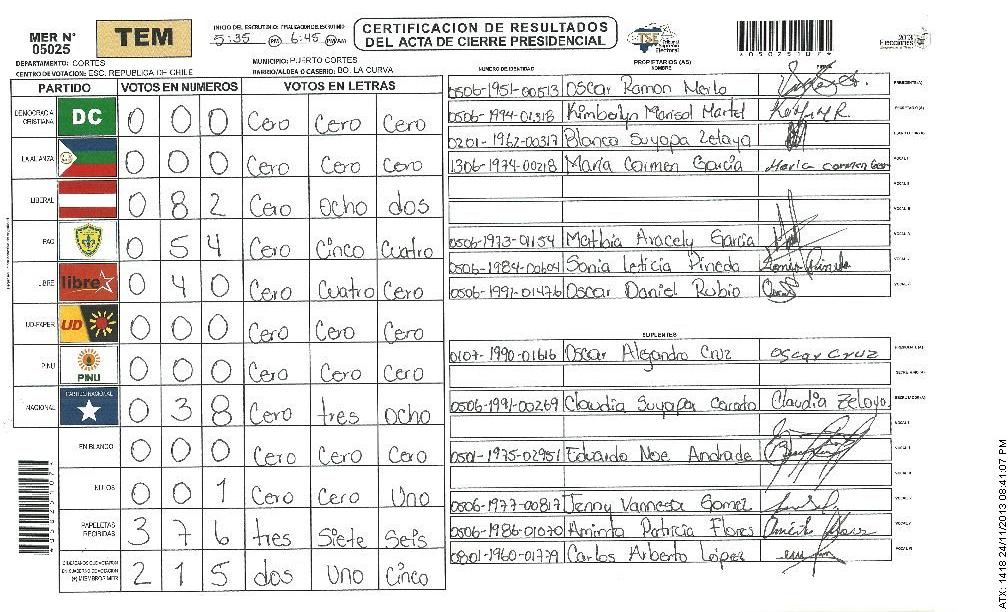 MER N° 05025
TEM
INICIO DEL ESCRUTINIO: FINALIZACION DE ESCRUTINIO:
5:35 PM 6:45 PM
CERTIFICACION DE RESULTADOS
DEL ACTA DE CIERRE PRESIDENCIAL
TSE Tribunal Supremo Electoral
Elecciones
DEPARTAMENTO: CORTES
MUNICIPIO: PUERTO CORTES
CENTRO DE VOTACION: ESC. REPUBLICA DE CHILE
BARRIO/ALDEA O CASERIO: BO. LA CURVA
NUMERO DE IDENTIDAD PROPIETARIOS (AS) NOMBRE
PARTIDO VOTOS EN NUMEROS VOTOS EN LETRAS
DEMOCRACIA CRISTIANA DC 0 0 0 Cero Cero Cero
LA ALIANZA 0 0 0 Cero Cero Cero
LIBERAL 0 8 2 Cero ocho dos
PAC 0 5 4 Cero Cinco Cuatro
LIBRE libre 0 4 0 Cero Cuatro Cero
UD-FAPER UD 0 0 0 Cero Cero Cero
PINU PINU 0 0 0 Cero Cero Cero
NACIONAL PARTIDO NACIONAL 0 3 8 Cero tres ocho
EN BLANCO 0 0 0 Cero Cero Cero
NULOS 0 0 1 Cero Cero Uno
PAPELETAS RECIBIDAS 3 7 6 tres Siete Seis
2 1 5 dos Uno Cinco
0506-1951-00513 Oscar Ramon Merlo
0506-1994-01318 Kimberlyn Marisol Martel
0201-1962-00317 Blanca Suyapa Zelaya
1306-1974-00218 Maria Carmen Garcia Maria Carmen
0506-1973-01154 Mathia Aracely Garcia
0506-1984-00604 Sonia Leticia Pineda Sonia Pineda
0506-1991-01476 Oscar Daniel Rubio
SUPLENTES
0107-1990-01616 Oscar Alejandro Cruz oscar cruz
0506-1991-00269 Claudia Suyapa Claudia Zelaya
0501-1975-02951 Eduardo Noe Andrade
0506-1977-00817 Jenny Vannessa Gomez
0506-1986-01070 Aminta Patricia Flores
0801-1960-01779 Carlos Arberto López
ATX: 1418 24/11/2013 08:41:07 PM